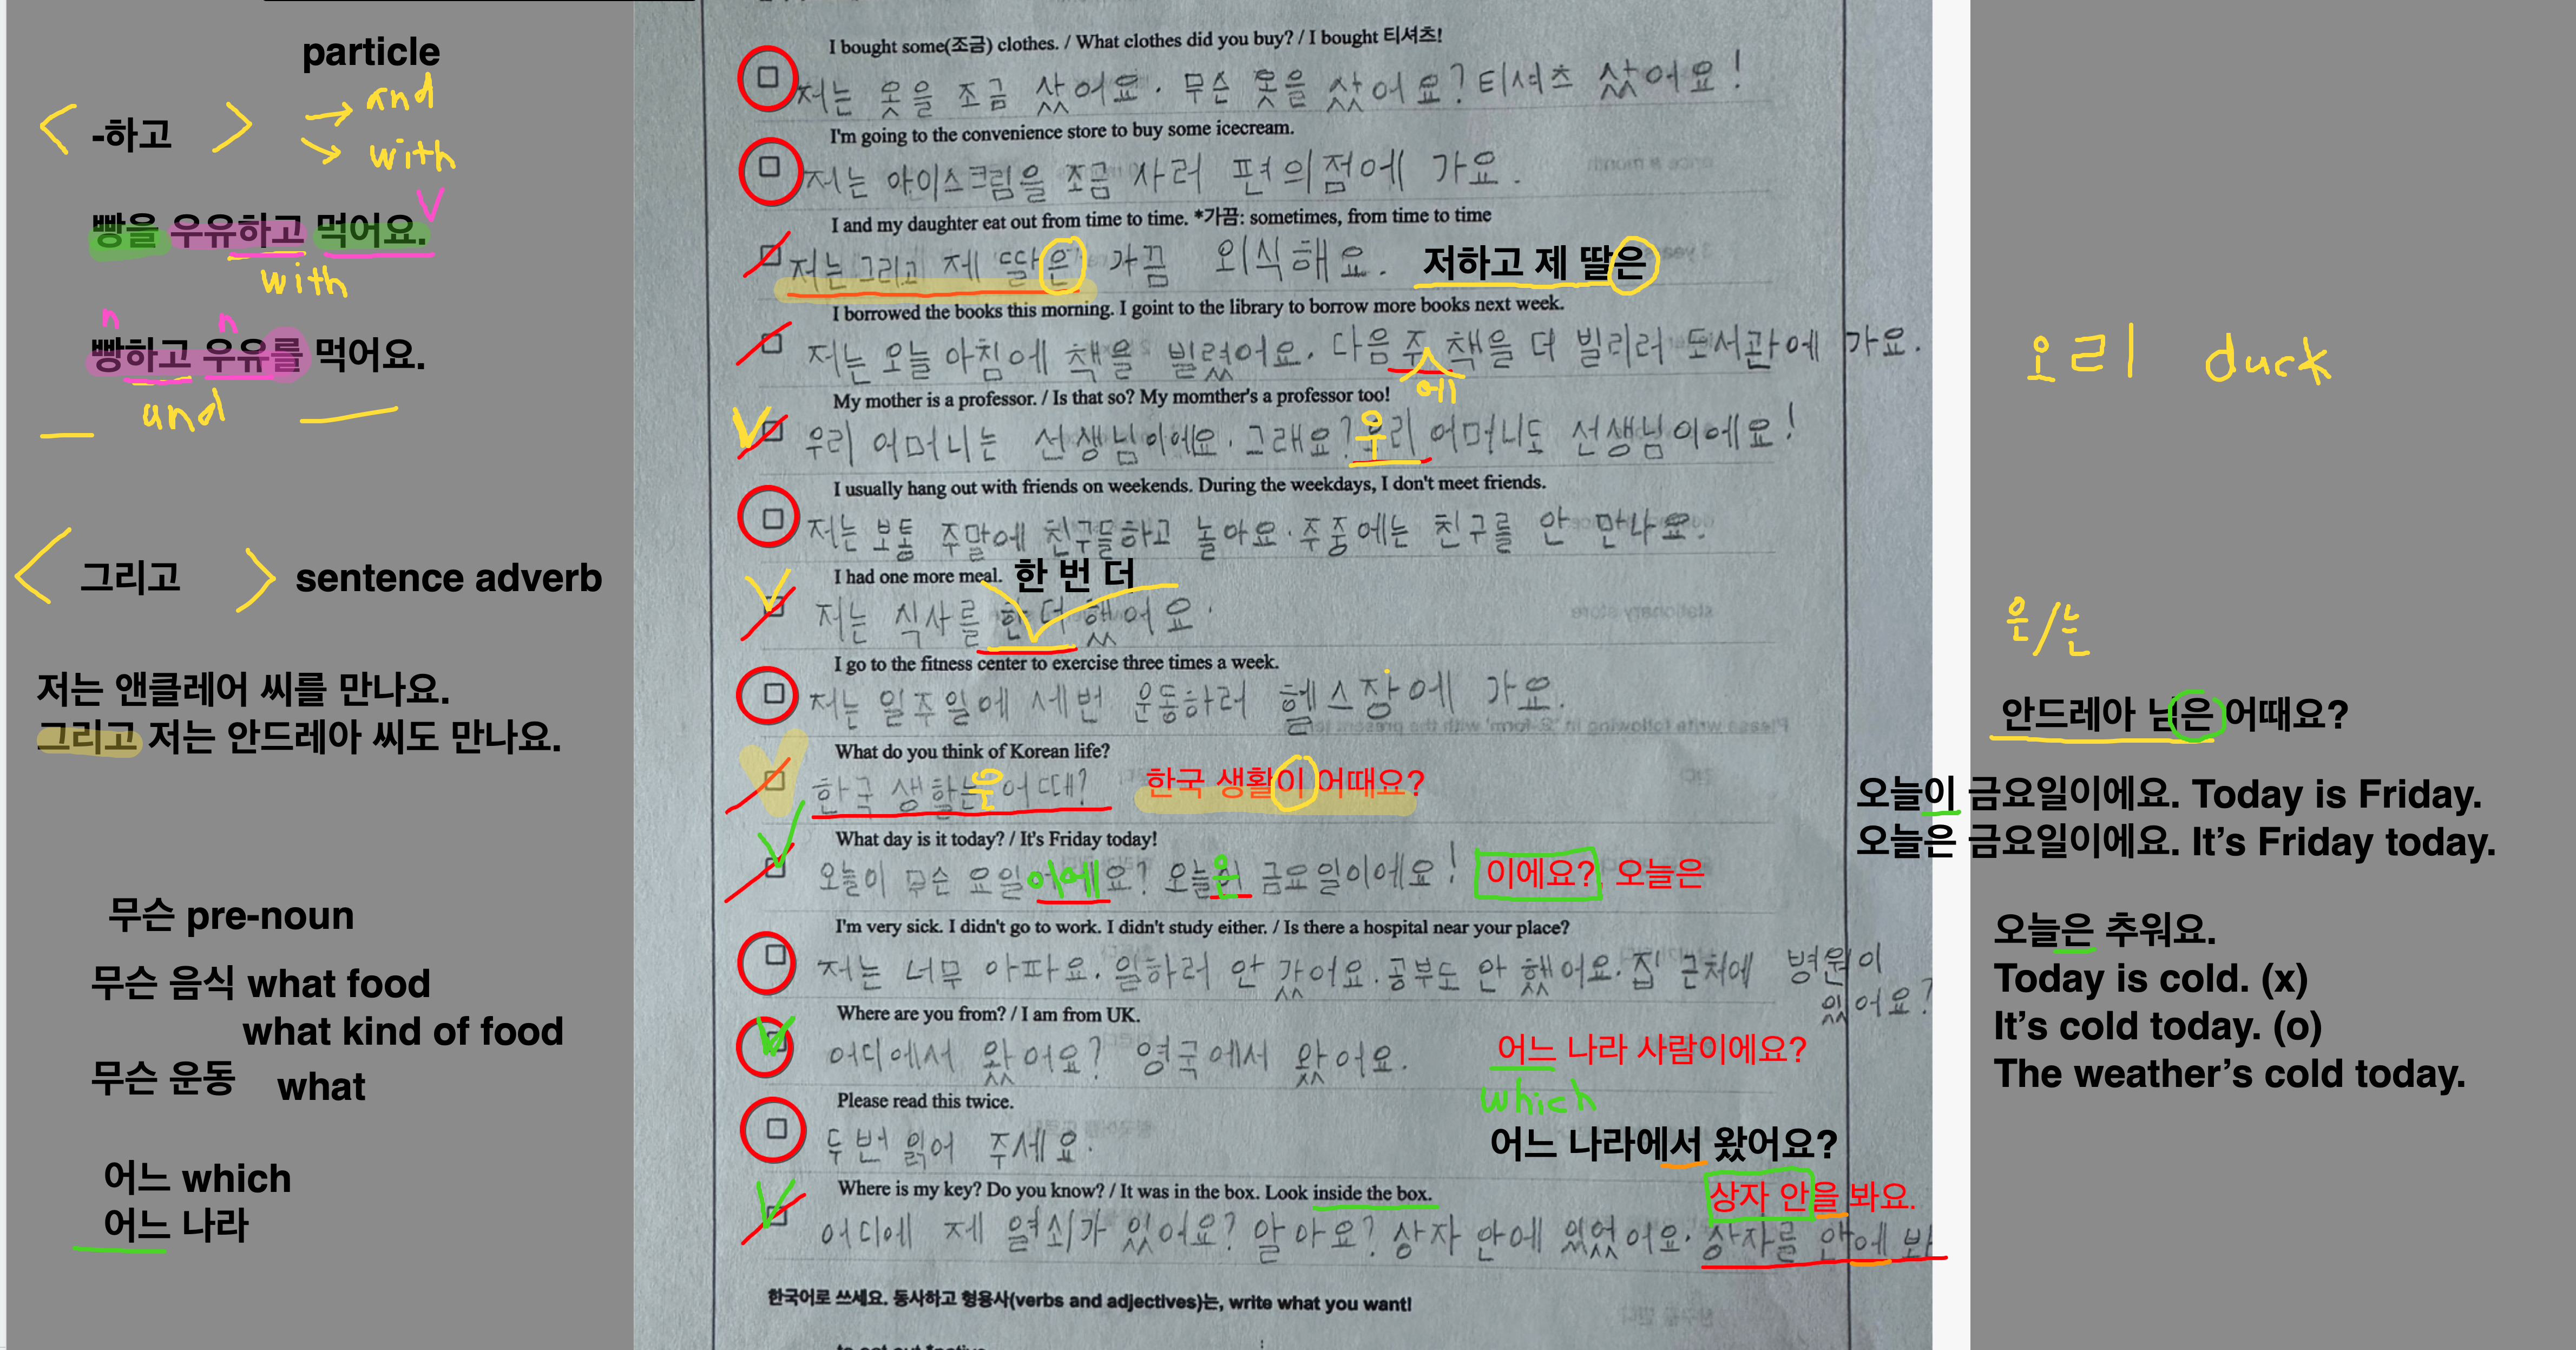 particle
-하고
and
with
빵을 우유하고 먹어요.
with
n n
빵하고 우유를 먹어요.
and
그리고 sentence adverb
저는 앤클레어 씨를 만나요.
그리고 저는 안드레아 씨도 만나요.
무슨 pre-noun
무슨 음식 what food
what kind of food
무슨 운동 what
어느 which
어느 나라
I bought some(조금) clothes. / What clothes did you buy? / I bought 티셔츠!
저는 옷을 조금 샀어요. 무슨 옷을 샀어요? 티셔츠 샀어요!
I'm going to the convenience store to buy some icecream.
저는 아이스크림을 조금 사러 편의점에 가요.
I and my daughter eat out from time to time. *가끔: sometimes, from time to time
저는 그리고 제 딸은 가끔 외식해요. 저하고 제 딸은
I borrowed the books this morning. I goint to the library to borrow more books next week.
저는 오늘 아침에 책을 빌렸어요. 다음 주 책을 더 빌리러 도서관에 가요.
에
My mother is a professor. / Is that so? My momther's a professor too!
우리 어머니는 선생님이에요. 그래요? 우리 어머니도 선생님이에요!
I usually hang out with friends on weekends. During the weekdays, I don't meet friends.
저는 보통 주말에 친구들하고 놀아요. 주중에는 친구를 안 만나요.
I had one more meal. 한 번 더
저는 식사를 한 더 했어요.
I go to the fitness center to exercise three times a week.
저는 일주일에 세번 운동하러 헬스장에 가요.
What do you think of Korean life?
한국 생활는 어때? 한국 생활이 어때요?
은
What day is it today? / It's Friday today!
오늘이 무슨 요일이에요? 오늘은 금요일이에요! 이에요? 오늘은
I'm very sick. I didn't go to work. I didn't study either. / Is there a hospital near your place?
저는 너무 아파요. 일하러 안 갔어요. 공부도 안 했어요. 집 근처에 병원이
있어요?
Where are you from? / I am from UK.
어디에서 왔어요? 영국에서 왔어요. 어느 나라 사람이에요?
which
Please read this twice.
두번 읽어 주세요. 어느 나라에서 왔어요?
Where is my key? Do you know? / It was in the box. Look inside the box. 상자 안을 봐요.
어디에 제 열쇠가 있어요? 알아요? 상자 안에 있었어요. 상자를 안에 봐
한국어로 쓰세요. 동사하고 형용사(verbs and adjectives)는, write what you want!
오리 duck
은/는
안드레아 님은 어때요?
오늘이 금요일이에요. Today is Friday.
오늘은 금요일이에요. It's Friday today.
오늘은 추워요.
Today is cold. (x)
It's cold today. (o)
The weather's cold today.